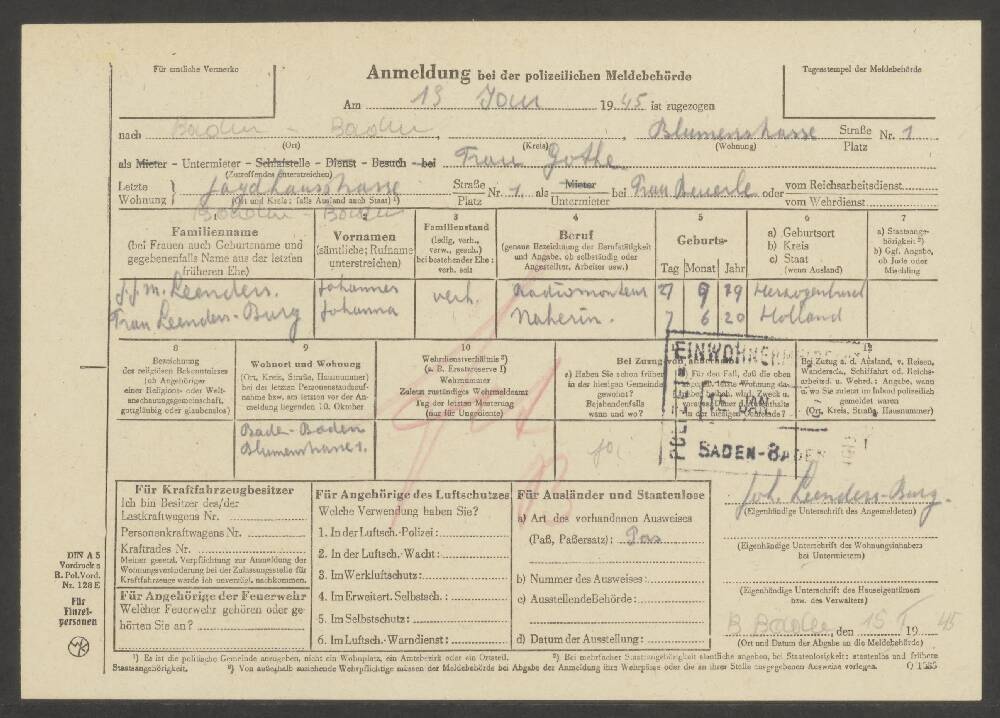 Für amtliche Vermerke
Anmeldung bei der polizeilichen Meldebehörde
Tagesstempel der Meldebehörde
Am 13 Jan 1945 ist zugezogen
nach Baden - Baden, Blumenstrasse Straße Nr. 1
(Ort) (Kreis) (Wohnung) Platz
als Mieter – Untermieter – Schlafstelle – Dienst – Besuch – bei Frau Gothe
(Zutreffendes unterstreichen)
Letzte Wohnung } Jagdhausstrasse Straße Nr. 1 als Mieter bei Frau Beuerle oder vom Reichsarbeitsdienst
(Ort und Kreis; falls Ausland auch Staat) ¹) Platz Untermieter vom Wehrdienst
Baden - Baden
1 2 3 4 5 6 7
Familienname
(bei Frauen auch Geburtsname und
gegebenenfalls Name aus der letzten
früheren Ehe)
Vornamen
(sämtliche; Rufname
unterstreichen)
Familienstand
(ledig, verh.,
verw., gesch.)
bei bestehender Ehe:
verh. seit
Beruf
(genaue Bezeichnung der Berufstätigkeit
und Angabe, ob selbständig oder
Angestellter, Arbeiter usw.)
Geburts-
Tag Monat Jahr
a) Geburtsort
b) Kreis
c) Staat
(wenn Ausland)
a) Staatsange-
hörigkeit ²)
b) Ggf. Angabe,
ob Jude oder
Mischling
J.J.M. Leenders. Johannes verh. Radiomonteur 27 9 19 Herzogenbusch
Frau Leenders-Burg Johanna Naherin. 7 6 20 Holland
8 9 10 12
Bezeichnung
des religiösen Bekenntnisses
(ob Angehöriger
einer Religions- oder Welt-
anschauungsgemeinschaft,
gottgläubig oder glaubenslos)
Wohnort und Wohnung
(Ort, Kreis, Straße, Hausnummer)
bei der letzten Personenstandsauf-
nahme bzw. am letzten vor der An-
meldung liegenden 10. Oktober
Wehrdienstverhältnis ³)
(z. B. Ersatzreserve I)
Wehrnummer
Zuletzt zuständiges Wehrmeldeamt
Tag der letzten Musterung
(nur für Ungediente)
Bei Zuzug von
a) Haben Sie schon früher
in der hiesigen Gemeinde
gewohnt?
Bejahendenfalls
wann und wo?
b) Für den Fall, daß die oben
Bei Zuzug a. d. Ausland, v. Reisen,
Wandersch., Schiffahrt od. Reichs-
arbeitsd. u. Wehrd.: Angabe, wann
u. wo zuletzt im Inland polizeilich
gemeldet waren
(Ort, Kreis, Straße, Hausnummer)
JAN.
BADEN-BADEN
Bade-Baden
Blumenstrasse 1.
Für Kraftfahrzeugbesitzer
Ich bin Besitzer des/der
Lastkraftwagens Nr.
Personenkraftwagens Nr.
Kraftrades Nr.
Meiner gesetzl. Verpflichtung zur Anmeldung der
Wohnungsveränderung bei der Zulassungsstelle für
Kraftfahrzeuge werde ich unverzügl. nachkommen.
Für Angehörige der Feuerwehr
Welcher Feuerwehr gehören oder ge-
hörten Sie an?
Für Angehörige des Luftschutzes
Welche Verwendung haben Sie?
1. In der Luftsch.-Polizei:
2. In der Luftsch.-Wacht:
3. Im Werkluftschutz:
4. Im Erweitert. Selbstsch.:
5. Im Selbstschutz:
6. Im Luftsch.-Warndienst:
Für Ausländer und Staatenlose
a) Art des vorhandenen Ausweises
(Paß, Paßersatz): Pas
b) Nummer des Ausweises:
c) Ausstellende Behörde:
d) Datum der Ausstellung:
Joh. Leenders-Burg.
(Eigenhändige Unterschrift des Angemeldeten)
(Eigenhändige Unterschrift des Wohnungsinhabers
bei Untermietern)
(Eigenhändige Unterschrift des Hauseigentümers
bzw. des Verwalters)
B Baden, den 15 I 1945
(Ort und Datum der Abgabe an die Meldebehörde)
DIN A 5
Vordruck a
R. Pol. Vord.
Nr. 128 E
Für
Einzel-
personen
¹) Es ist die politische Gemeinde anzugeben, nicht ein Wohnplatz, ein Amtsbezirk oder ein Ortsteil. ²) Bei mehrfacher Staatsangehörigkeit sämtliche angeben, bei Staatenlosigkeit: staatenlos und frühere
Staatsangehörigkeit. ³) Von außerhalb zuziehende Wehrpflichtige müssen der Meldebehörde bei Abgabe der Anmeldung ihre Wehrpässe oder die an ihrer Stelle ausgegebenen Ausweise vorlegen. Q 1585